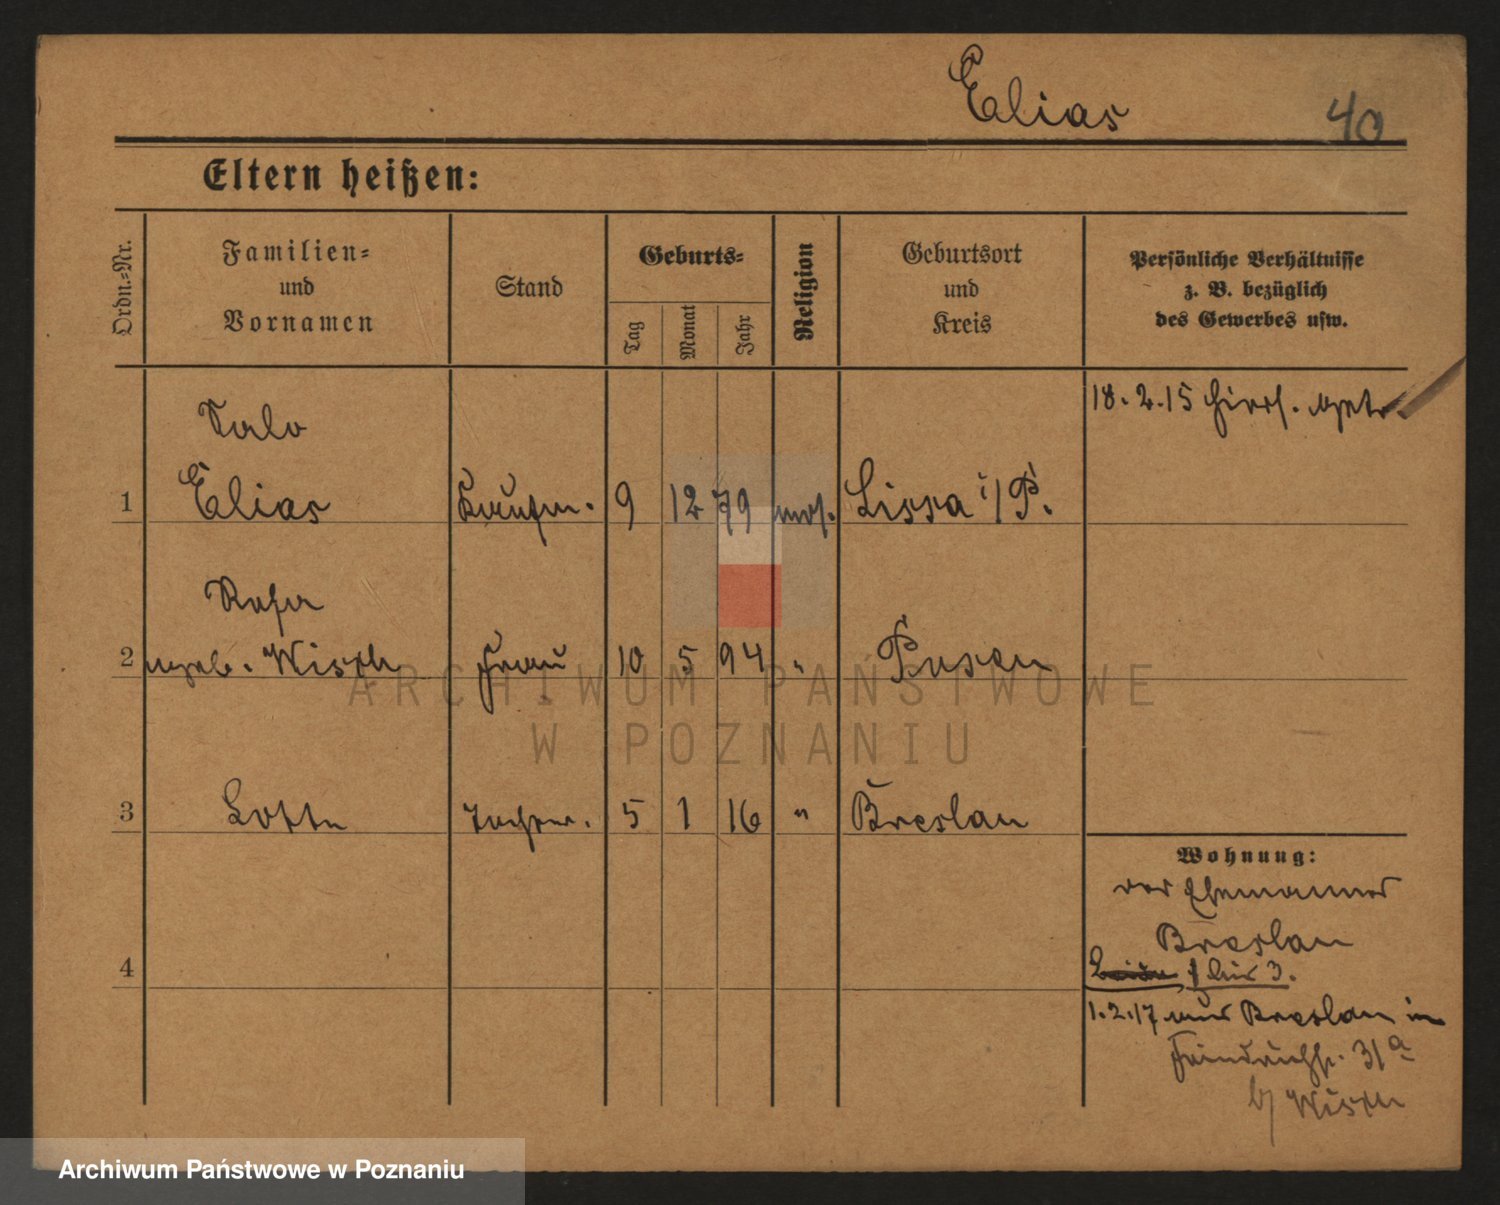 Elias
40
Eltern heißen:
Ordn.=Nr.
Familien=
und
Vornamen
Stand
Geburts=
Tag
Monat
Jahr
Religion
Geburtsort
und
Kreis
Persönliche Verhältnisse
z. B. bezüglich
des Gewerbes usw.
18.2.15 hier
Salo
1 Elias Kaufm. 9 12 79 mos. Lissa i/P.
Rosa
2 geb. Wisch Frau 10 5 94 " Posen
3 Lotte Tochter. 5 1 16 " Breslau
Wohnung:
des Ehemannes
Breslau
4
1 bis 3.
1.2.17 aus Breslau in
Friedrichstr. 31a
b/ Wisch
ARCHIWUM PAŃSTWOWE
W POZNANIU
Archiwum Państwowe w Poznaniu